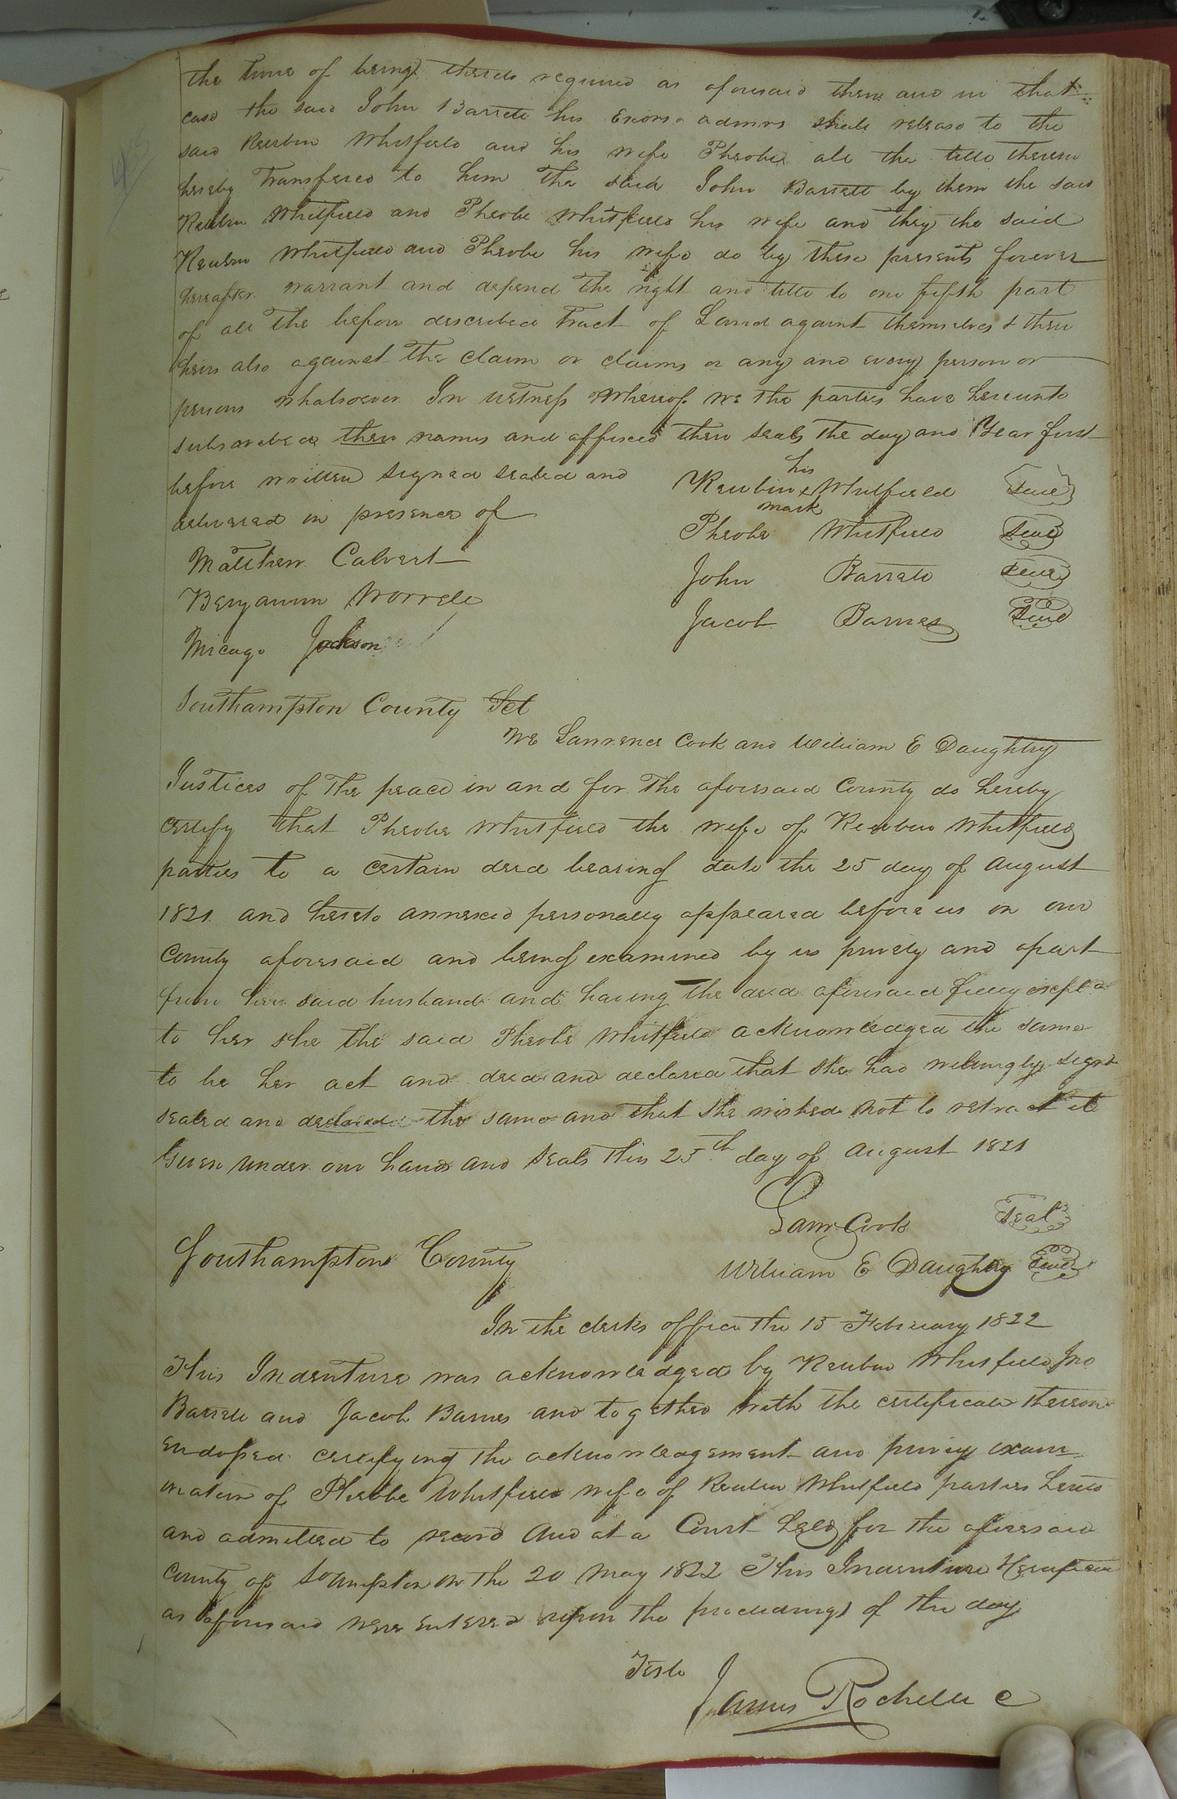 the time of being thereto required as aforesaid then and in that
case the said John Barrett his Exors & admrs shall release to the
said Reubin Whitfield and his wife Pheobe all the title therein
hereby Transfered to him the said John Barrett by them the said
Reubin Whitfield and Pheobe Whitfield his wife and they the said
Reubin Whitfield and Pheobe his wife do by these presents forever
hereafter warrant and defend the right and title to one fifth part
of all the before described Tract of Land against themselves & their
heirs also against the claim or claims or any and every person or
persons whatsoever In witness whereof we the parties have hereunto
subscribed their names and affixed their seals the day and Year first
before written signed sealed and
delivered in presence of
Matthew Calvert
Benjamin Worrell
Micago Jackson
Reubin his x mark Whitfield Seal
Pheobe Whitfield Seal
John Barrett Seal
Jacob Barnes Seal
Southampton County Sct
We Lawrence Cook and William E Daughtry
Justices of the peace in and for the aforesaid County do hereby
certify that Pheobe Whitfield the wife of Reubin Whitfield
parties to a certain deed bearing date the 25 day of August
1821 and hereto annexed personally appeared before us in our
County aforesaid and being examined by us privily and apart
from her said husband and having the deed aforesaid fully expla
to her she the said Pheobe Whitfield acknowledged the same
to be her act and deed and declared that she had willingly signd
sealed and declared the same and that she wished not to retract it
Given under our hands and seals this 25th day of August 1821
Lawr Cook Seal
William E Daughtry Seal
Southampton County
In the clerks office the 15 February 1822
This Indenture was acknowledged by Reubin Whitfield Jno
Barrett and Jacob Barnes and together with the certificate thereon
endorsed certifying the acknowledgement and privy exam-
ination of Pheobe Whitfield wife of Reubin Whitfield parties hereto
and admitted to record And at a Court held for the aforesaid
County of Soampton on the 20 May 1822 This Indenture
as aforesaid were entered upon the proceedings of the day
Teste
James Rochelle C